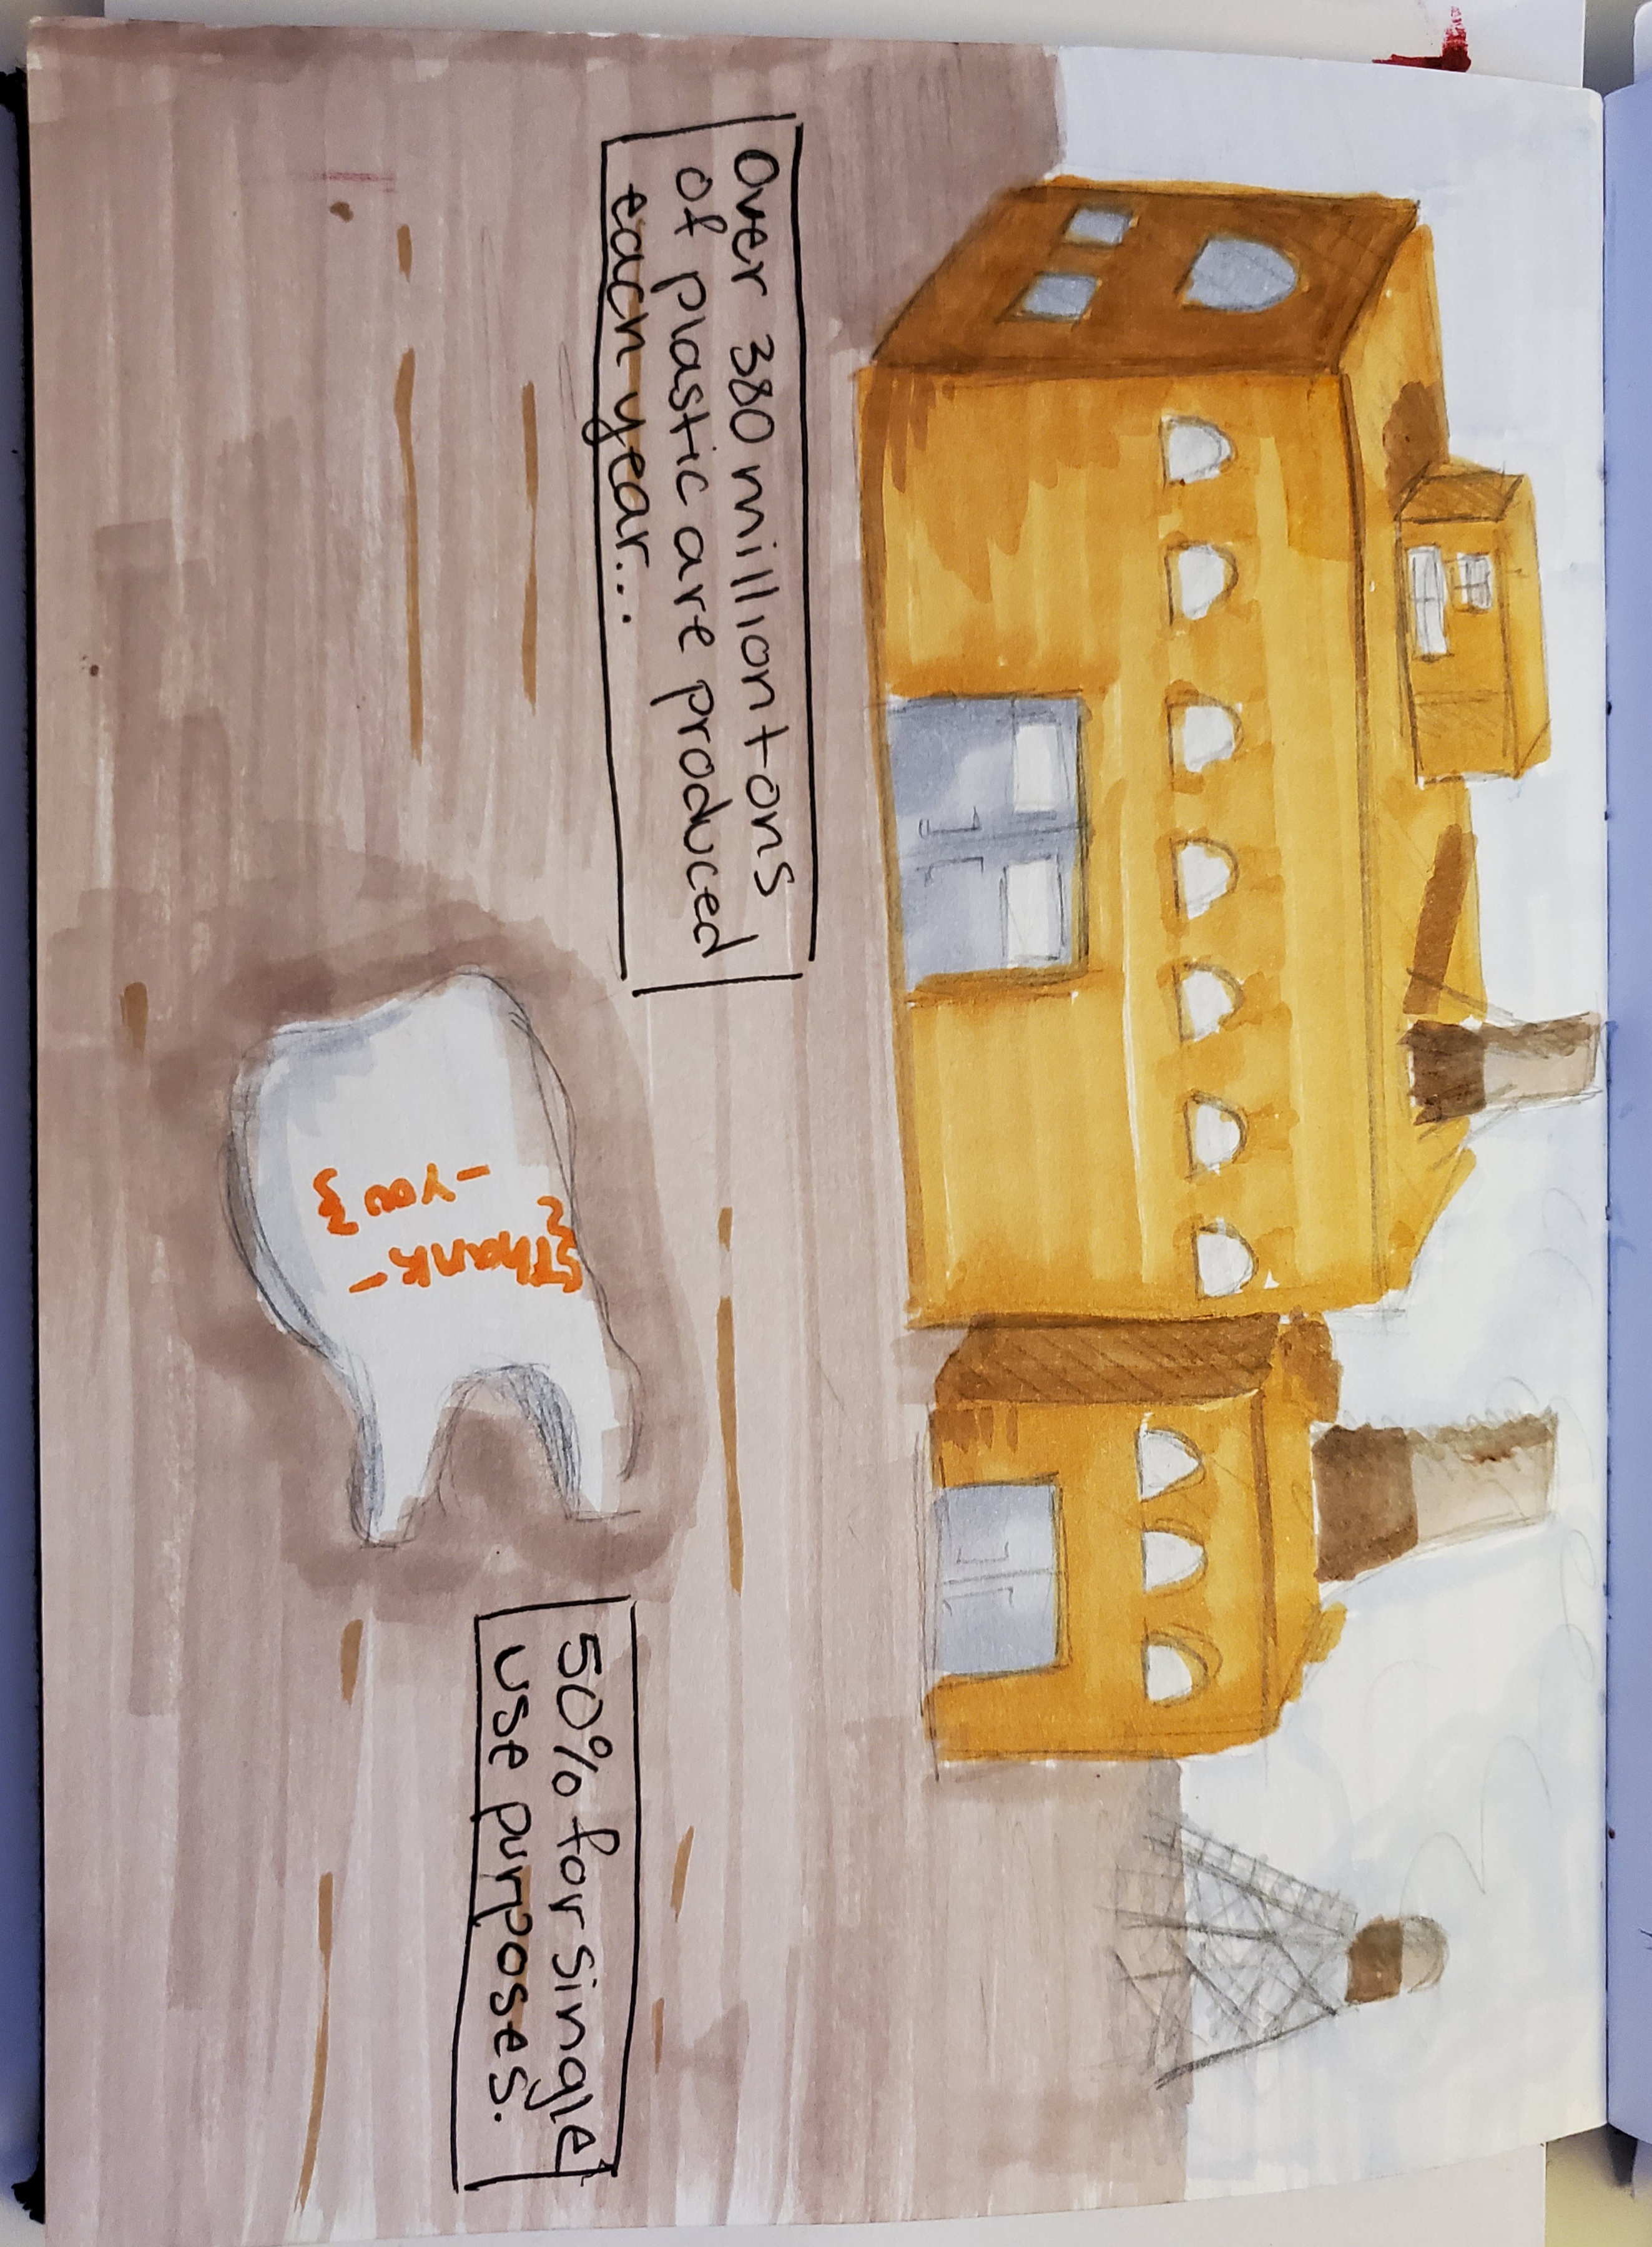 Over 380 million tons
of plastic are produced
each year...
Thank-
-you
50% for single
use purposes.